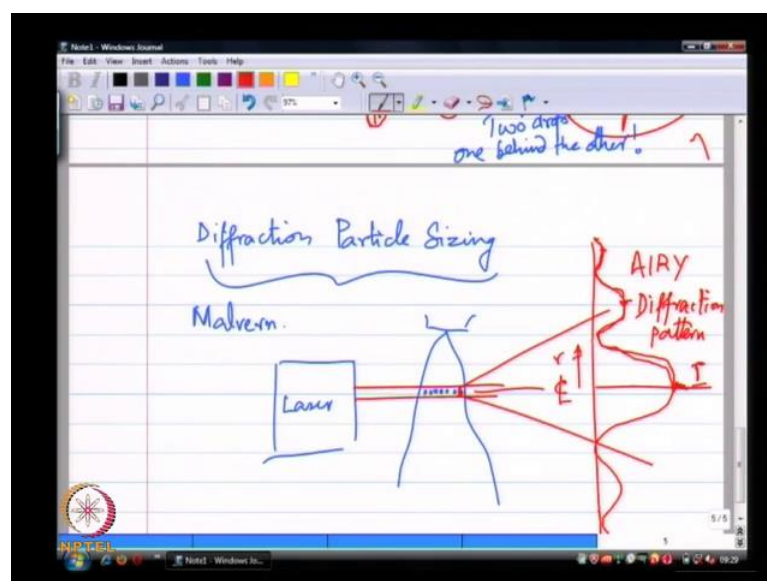 Note1 - Windows Journal
File Edit View Insert Actions Tools Help
97%
Two drops
one behind the other!
Diffraction Particle Sizing
Malvern.
Laser
AIRY
Diffraction
pattern
r
I
5/5
5
NPTEL
Note1 - Windows Jo...
09:29